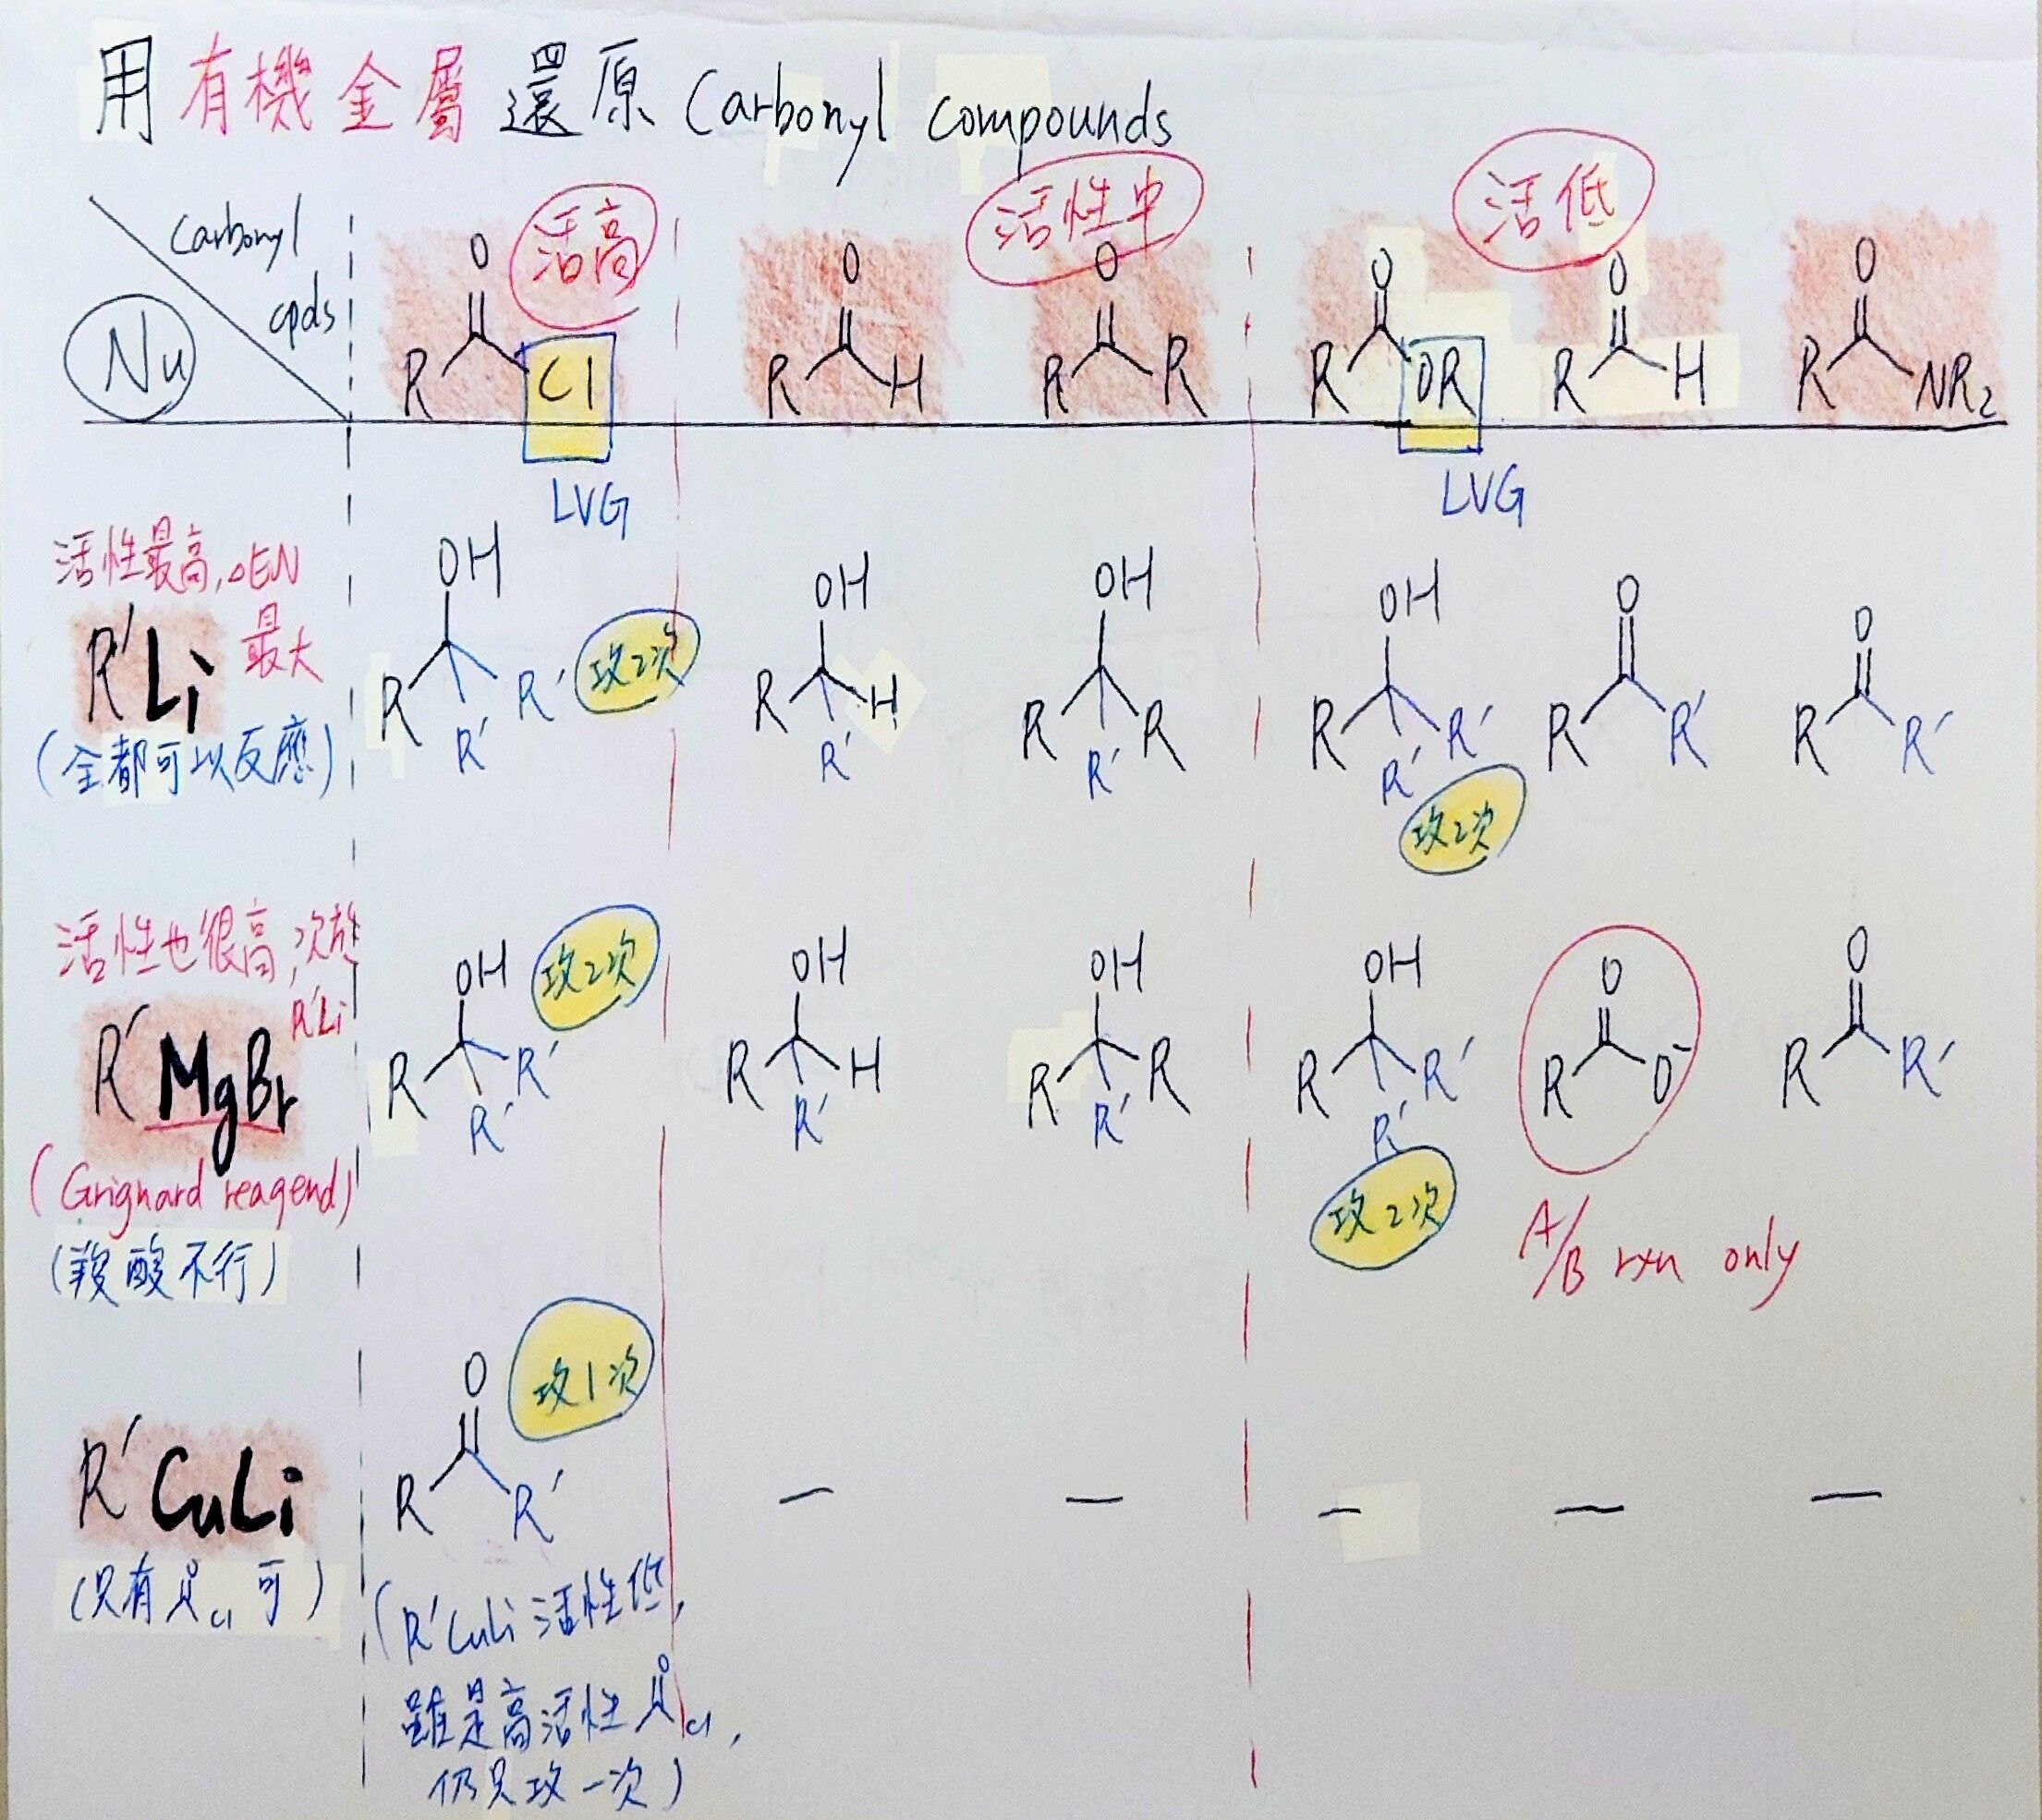 用有機金屬還原 Carbonyl compounds
Carbonyl cpds
Nu
活高
活性中
活低
O R Cl
O R H
O R R
O R OR
O R H
O R NR2
LVG
LVG
活性最高, ΔEN 最大
R'Li
(全都可以反應)
OH R R' R' 攻2次
OH R H R'
OH R R R'
OH R R' R' 攻2次
O R R'
O R R'
活性也很高, 次於 R'Li
R'MgBr
(Grignard reagend)
(羧酸不行)
OH R R' R' 攻2次
OH R H R'
OH R R R'
OH R R' R' 攻2次
O R O⁻
A/B rxn only
O R R'
R'CuLi
(只有 O Cl 可)
O R R' 攻1次
— — — — —
(R'CuLi 活性低,
雖是高活性 O Cl,
仍只攻一次)